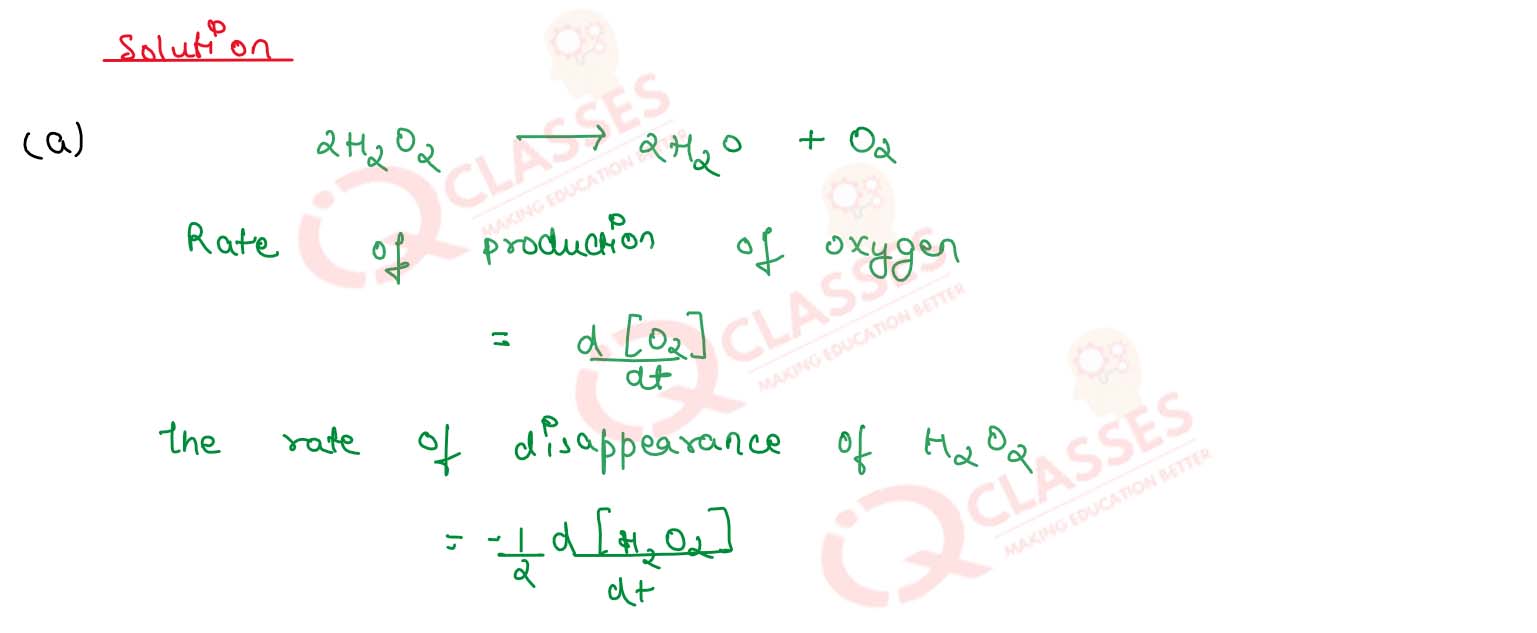 Solution
(a) 2H₂O₂ ⟶ 2H₂O + O₂
Rate of production of oxygen
= d[O₂]/dt
the rate of disappearance of H₂O₂
= -1/2 d[H₂O₂]/dt
iQ CLASSES
MAKING EDUCATION BETTER
iQ CLASSES
MAKING EDUCATION BETTER
iQ CLASSES
MAKING EDUCATION BETTER